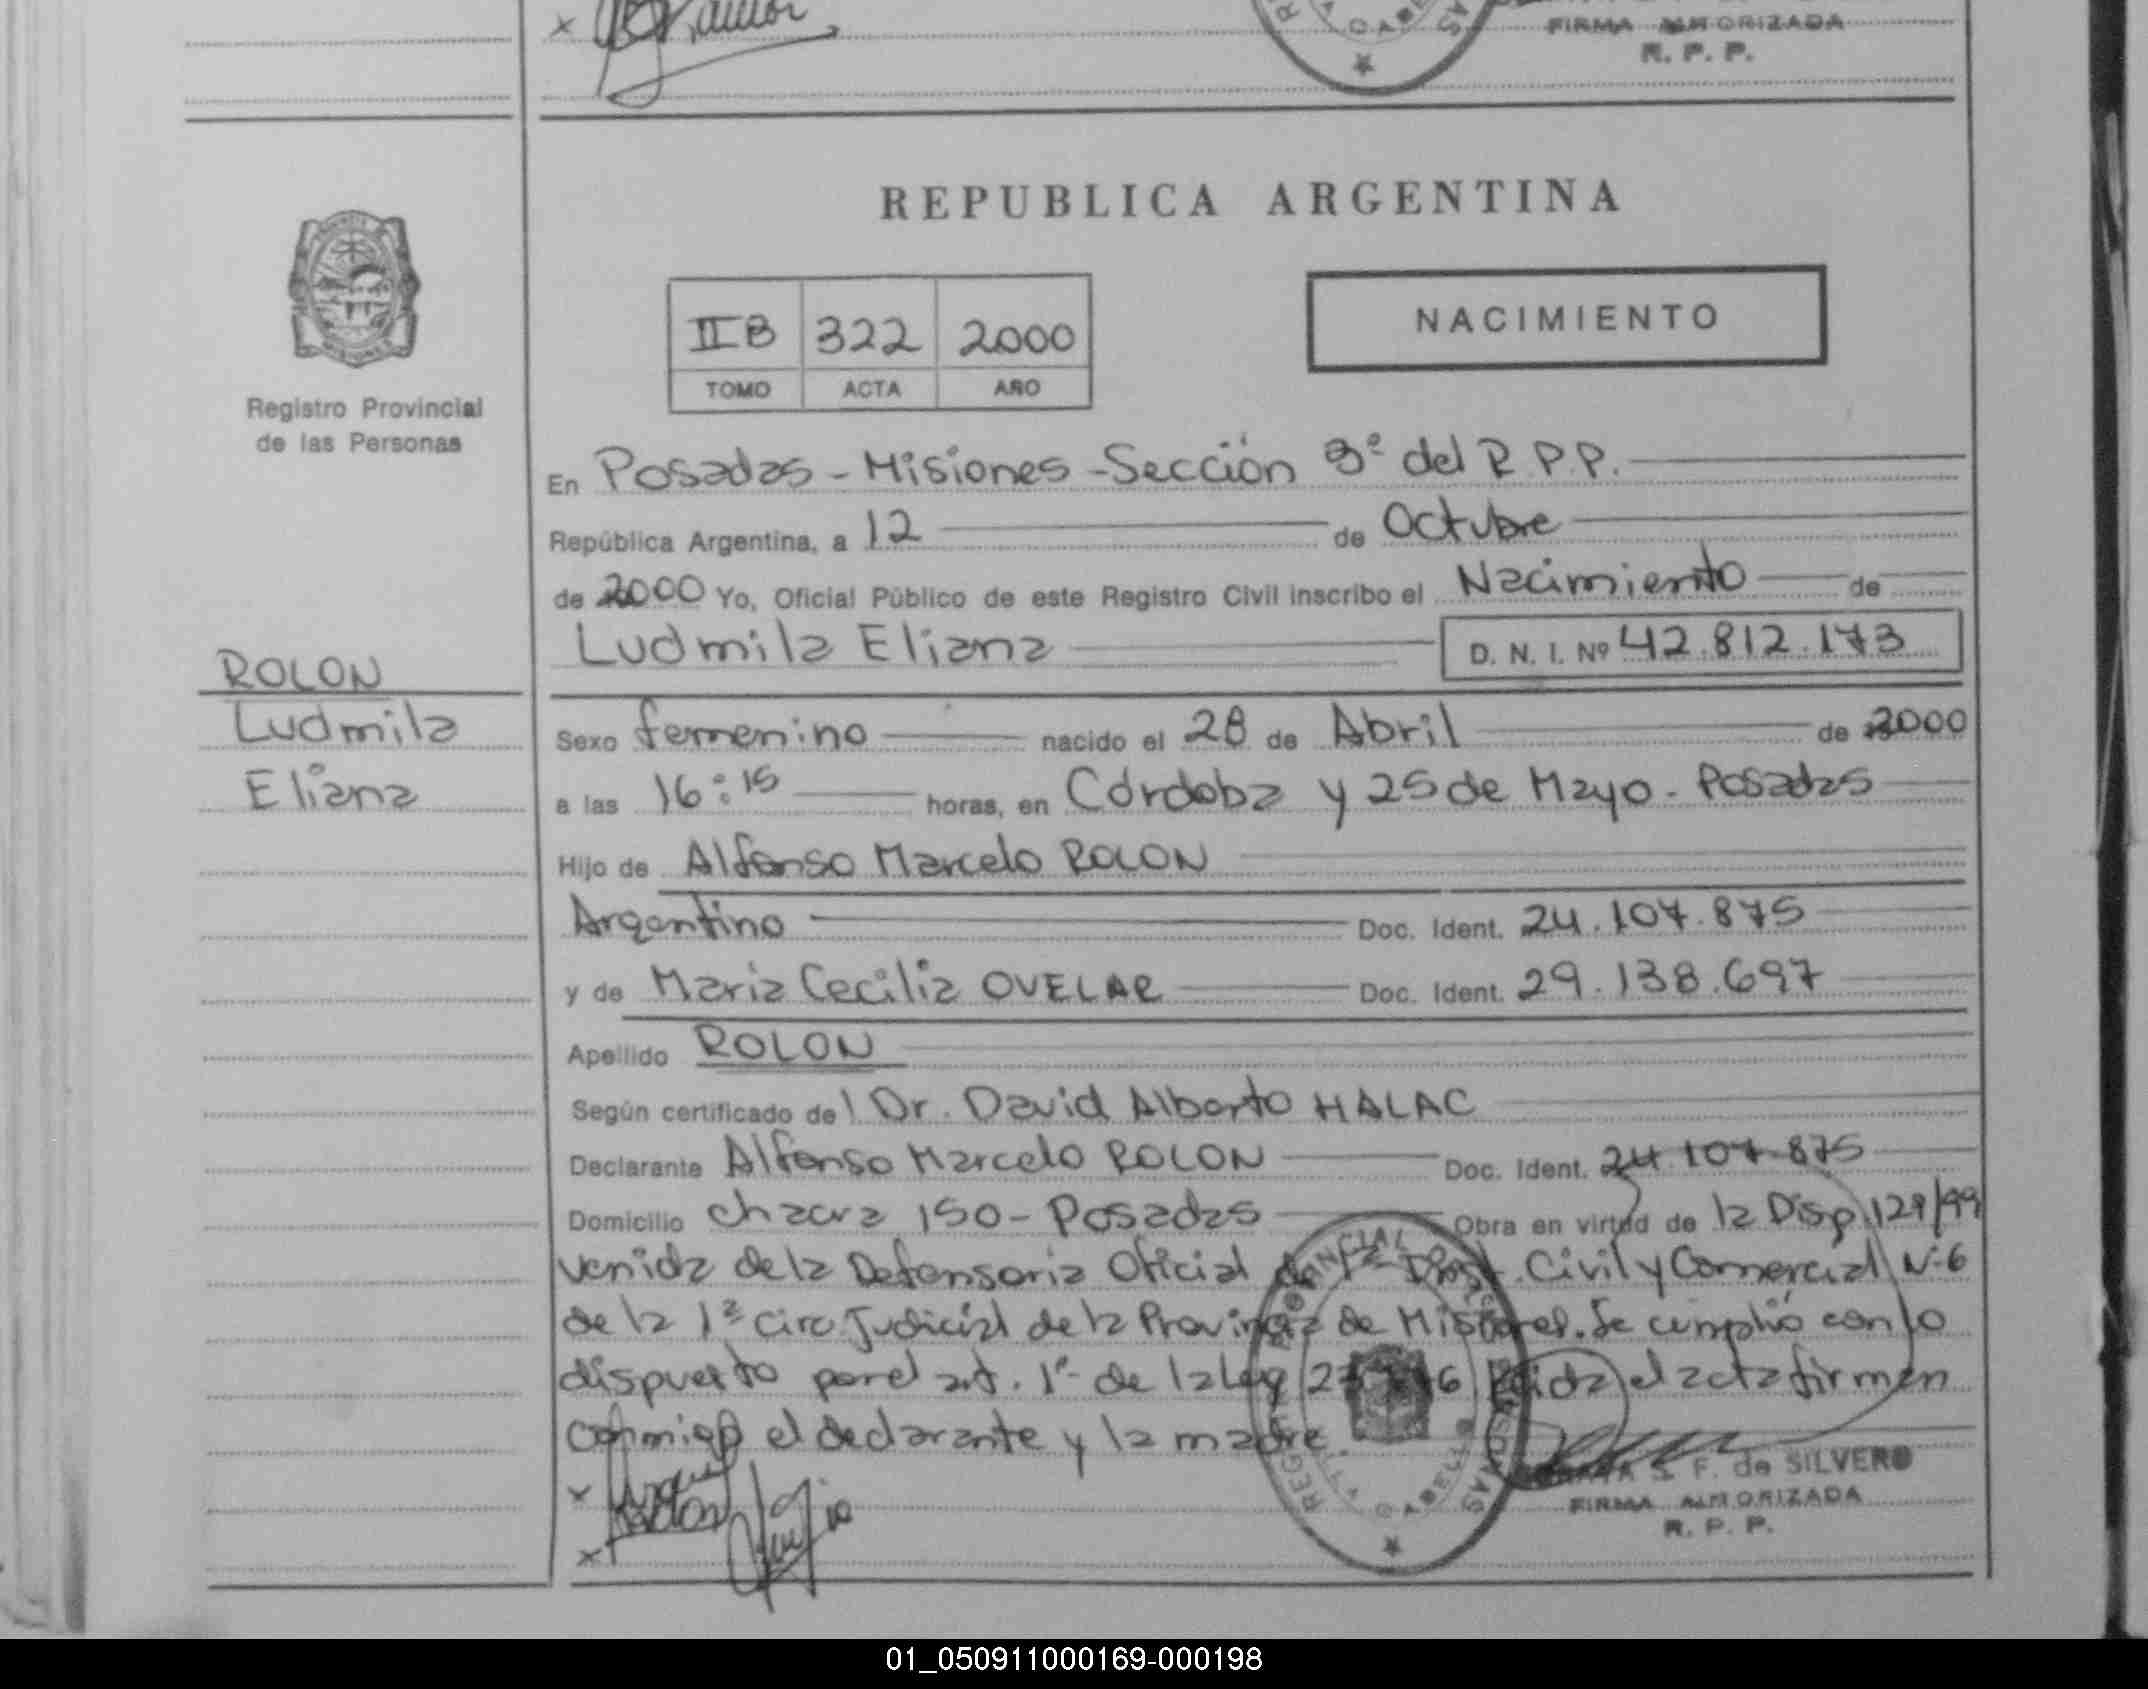 FIRMA AUTORIZADA
R. P. P.
REPUBLICA ARGENTINA
IIB 322 2000
TOMO ACTA AÑO
NACIMIENTO
Registro Provincial
de las Personas
En Posadas - Misiones - Sección 3º del R.P.P.
República Argentina, a 12 de Octubre
de 2000 Yo, Oficial Público de este Registro Civil inscribo el Nacimiento de
Ludmila Eliana D. N. I. Nº 42.812.173
ROLON
Ludmila
Eliana
Sexo femenino nacido el 28 de Abril de 2000
a las 16:15 horas, en Córdoba y 25 de Mayo - Posadas
Hijo de Alfonso Marcelo ROLON
Argentino Doc. Ident. 24.107.875
y de Maria Cecilia OVELAR Doc. Ident. 29.138.697
Apellido ROLON
Según certificado del Dr. David Alberto HALAC
Declarante Alfonso Marcelo ROLON Doc. Ident. 24.107.875
Domicilio chacra 150 - Posadas Obra en virtud de la Disp. 129/99
venida de la Defensoria Oficial de 1ª Inst. Civil y Comercial Nº 6
de la 1ª Circ Judicial de la Provincia de Misiones. Se cumplió con lo
dispuesto por el art. 1º de la Ley leida el acta firman
conmigo el declarante y la madre.
S. F. de SILVERO
FIRMA AUTORIZADA
R. P. P.
01_050911000169-000198